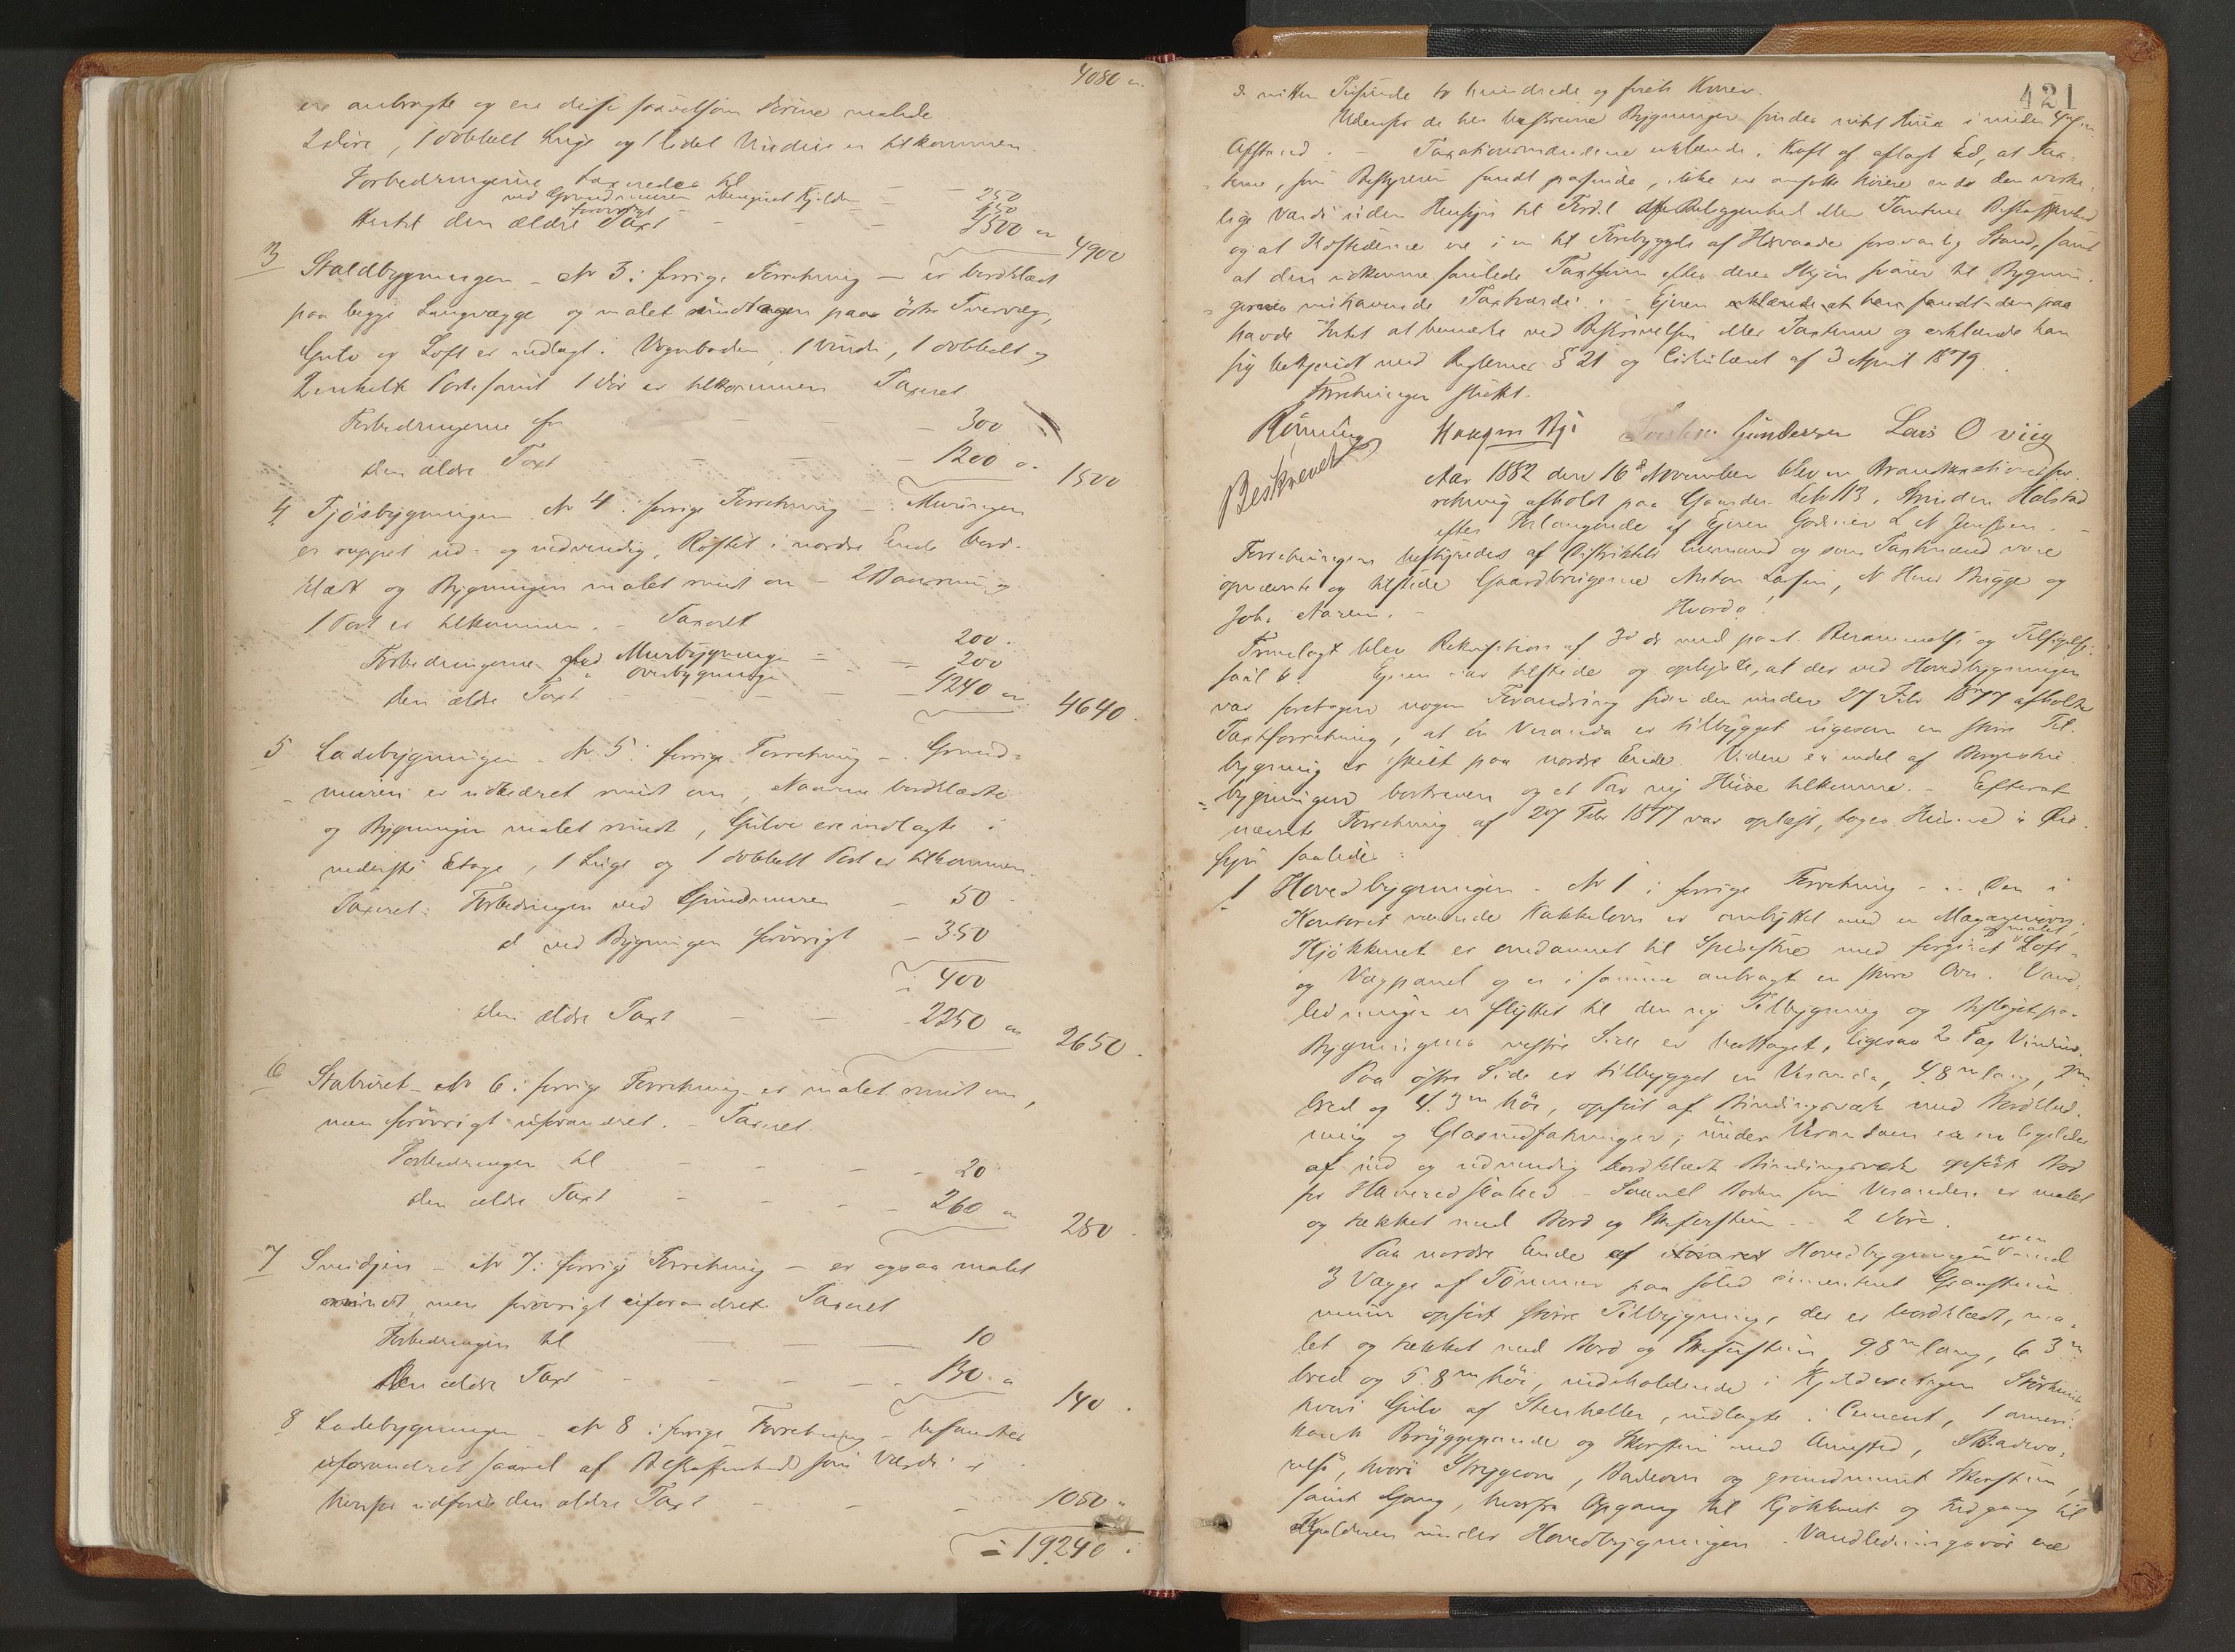 4080 "
ere anbragte og ere disse saavelsom Dörene malede.
2 Döre, 1 dobbelt Luge og 1 lidet Vindue er tilkommen.
Forbedringerne taxeredes til - - 250
ved Grundmuren iberegnet Kjelder - 150
Hertil den ældre Taxt forövrigt - - - 4500 " 4900
3 Staldbygningen - No 3 i forrige Forretning - er bordklædt
paa begge Langvægge og malet undtagen paa östre Tvervæg,
Gulv og Loft er indlagt i Vognboden, 1 Vindu, 1 dobbelt og
2 enkelte Porte samt 1 Dör er tilkommen Taxeret
Forbedringerne for - - - 300
den ældre Taxt - - - 1200 " 1500
4 Fjösbygningen No 4 i forrige Forretning - Muringen
er rappet ud- og indvendig, Röstet i nordre Ende bord-
klædt og Bygningen malet rundt om - 2 Baasrum og
1 Port er tilkommen. - Taxeret
Forbedringerne ved Murbygningen - - 200.
" Overbygningen - - 200
den ældre Taxt - - - 4240 " 4640.
5 Ladebygningen - No 5 i forrige Forretning - Grund-
muren er udbedret rundt om, Navrene bordklædte
og Bygningen malet rundt, Gulve ere indlagte i
nederste Etage, 1 Luge og 1 dobbelt Port er tilkommen.
Taxeret: Forbedringen ved Grundmuren - 50 -
d ved Bygningen forövrigt - 350
= 400
den ældre Taxt - - - 2250 " 2650.
6 Staburet - No 6 i forrige Forretning er malet rundt om,
men forövrigt uforandret. - Taxeret.
Forbedringen til - - - - 20
den ældre Taxt - - - - 260 " 280.
7 Smidjen - No 7 i forrige Forretning - er ogsaa malet
rundt, men forövrigt uforandret. Taxeret
Forbedringen til - - 10
Den ældre Taxt - - - - 130 " 140.
8 Ladebygningen - No 8 i forrige Forretning - befandtes
uforandret saavel af Beskaffenhed som Værdi og
herfor udföres den ældre Taxt - - - 1050 "
= 19240
421
er nitten Tusinde to hundrede og firti Kroner.
Udenfor de her beskrevne Bygninger findes intet Huus i mindre
Afstand. - Taxationsmændene erklærede, i Kraft af aflagt Ed, at Tax-
terne, som Bestyreren fandt passende, ikke ere ansatte höiere end den virke-
lige Værdi uden Hensyn til Jord, Beliggenhed eller Tomtens Beskaffenhed
og at Ildstederne ere i en til Forebyggelse af Ildsvaade forsvarlig Stand, samt
at den udkomne samlede Taxtsum efter deres Skjön svarer til Bygnin-
gernes nuhavende Taxtværdi. - Ejeren erklærede at han fandt den paa
havde Intet at bemærke ved Beskrivelsen eller Taxterne og erklærede han
sig bekjendt med Reglernes § 21 og Cirkulæret af 3 April 1879.
Forretningen sluttet.
Rönning Haagen Gundersen Lars O Vieg
Beskrevet
Aar 1882 den 16d November blev en Brandtaxationsfor-
retning afholdt paa Gaarden No 113, Halstad
efter Forlangende af Ejeren Godseier L N Jenssen. -
Forretningen bestyredes af Distriktets Lensmand og som Taxtmænd vare
opnævnte og tilstede Gaardbrugerne Anton Larsen, N Hans Brygge og
Joh. Aasen. - Hvorda:
Fremlagt blev Rekvisition af 3d ds med paat. Berammelse og Tilsigelse.
saal 6. Ejeren var tilstede og oplyste, at der ved Hovedbygningen
var foretagen nogen Forandring siden den under 27 Febr 1877 afholdte
Taxtforretning, at en Veranda er tilbygget ligesom en större Til-
bygning er skeet paa nordre Ende. Videre er endel af Borgestue-
bygningen bortreven og et Par nye Huse tilkomne. - Efterat
nævnte Forretning af 27 Febr 1877 var oplæst, toges Husene i Öie-
syn saaledes:
1 Hovedbygningen - No 1 i forrige Forretning - Den i
Kontoret værende Kakkelovn er ombyttet med en Magasinovn;
Kjökkenet er omdannet til Spisestue med forsiret og malet Loft-
og Vægpanel og er i samme anbragt en större Ovn. Vand-
ledningen er flyttet til den nye Tilbygning og Bislaget paa
Bygningens vestre Side er borttaget, ligesaa 2 Fag Vinduer.
Paa östre Side er tilbygget en Veranda, 4.8 m lang, 2 m
bred og 4.3 m höi, opfört af Bindingsværk med Bordklæd-
ning og Glasindfatninger; under Verandaen er en ligeledes
af ind og udvendig bordklædt Bindingsværk opfört Bod
for Haveredskaber. - Saavel Boden som Verandaen er malet
og tækket med Bord og Skifersteen - 2 Döre.
Paa nordre Ende af Hovedbygningen er en med
3 Vægge af Tömmer paa solid cementeret Graasteens-
muur opfört större Tilbygning, der er bordklædt, ma-
let og tækket med Bord og Skifersteen, 9.8 m lang, 6.3 m
bred og 5.8 m höi, indeholdende i Kjelderetagen Störhuus,
hvori Gulv af Steenheller, indlagte i Cement, 1 ameri-
kansk Bryggepande og Skorsten med Arnested, Badevæ-
relse, hvori Strygeovn, Badeovn og grundmuret Skorsteen,
samt Gang, hvorfra Opgang til Kjökkenet og Nedgang til
Kjælderen under Hovedbygningen. Vandledningsrör ere